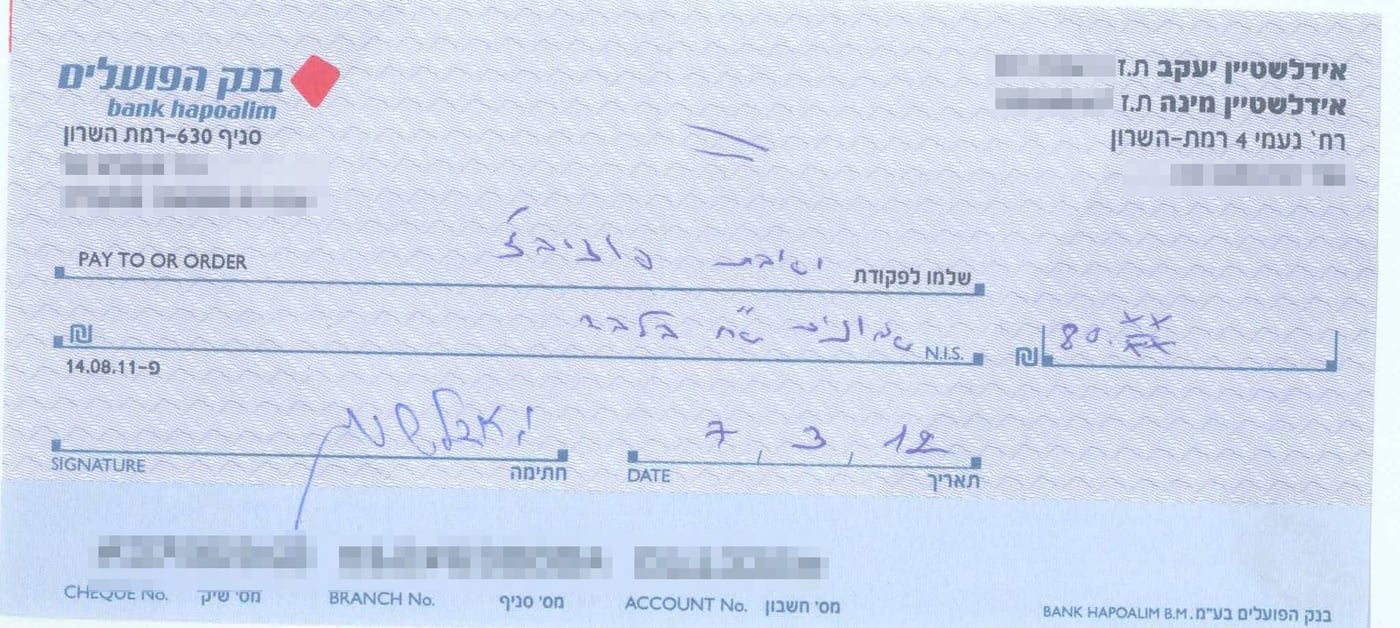 בנק הפועלים
bank hapoalim
סניף 630-רמת השרון
אידלשטיין יעקב ת.ז
אידלשטיין מינה ת.ז
רח' נעמי 4 רמת-השרון
PAY TO OR ORDER שלמו לפקודת ישיבת פוניבז'
₪ N.I.S. שמונים ש"ח בלבד
₪ 80.xx
14.08.11-פ
SIGNATURE חתימה
DATE 7 3 12 תאריך
CHEQUE No. מס' שיק BRANCH No. מס' סניף ACCOUNT No. מס' חשבון
BANK HAPOALIM B.M. בנק הפועלים בע"מ